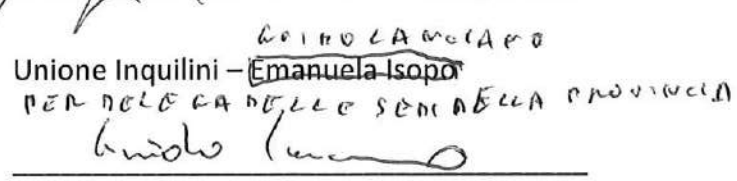 GUIDO LANCIANO
Unione Inquilini – Emanuela Isopo
PER DELEGA DELLE SEDI DELLA PROVINCIA
Guido